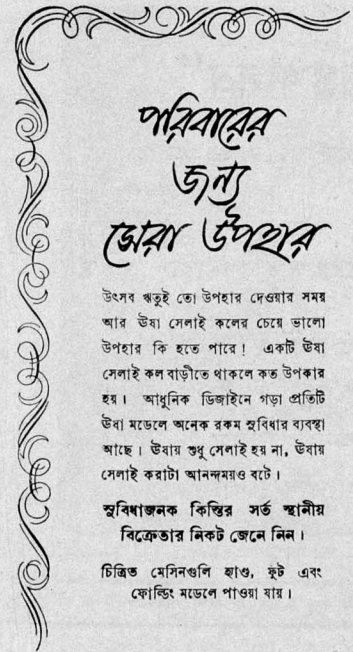 পরিবারের
জন্য
সেরা উপহার
উৎসব ঋতুই তো উপহার দেওয়ার সময়
আর ঊষা সেলাই কলের চেয়ে ভালো
উপহার কি হতে পারে ! একটি ঊষা
সেলাই কল বাড়ীতে থাকলে কত উপকার
হয়। আধুনিক ডিজাইনে গড়া প্রতিটি
ঊষা মডেলে অনেক রকম সুবিধার ব্যবস্থা
আছে। ঊষায় শুধু সেলাই হয় না, ঊষায়
সেলাই করাটা আনন্দময়ও বটে।
সুবিধাজনক কিস্তির সর্ত স্থানীয়
বিক্রেতার নিকট জেনে নিন।
চিত্রিত মেসিনগুলি হ্যাণ্ড, ফুট এবং
ফোল্ডিং মডেলে পাওয়া যায়।